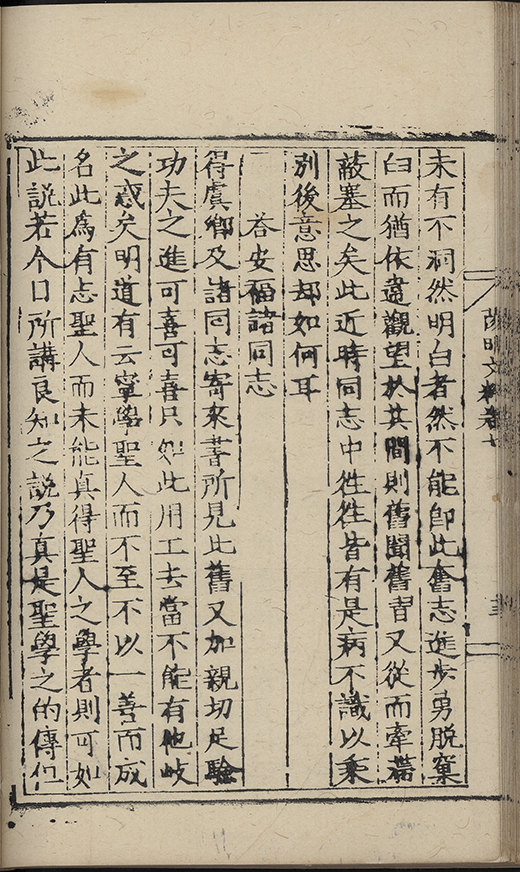 未有不洞然明白者然不能卽此奮志進步勇脫窠
臼而猶依違觀望於其間則舊聞舊習又從而牽滯
蔽塞之矣此近時同志中徃徃皆有是病不識以乘
別後意思却如何耳
答安福諸同志
得虞卿及諸同志寄來書所見比舊又加親切足驗
功夫之進可喜可喜只如此用工去當不能有他岐
之惑矣明道有云寧學聖人而不至不以一善而成
名此爲有志聖人而未能真得聖人之學者則可如
此說若今日所講良知之說乃真是聖學之的傳但
陽明文粹卷七